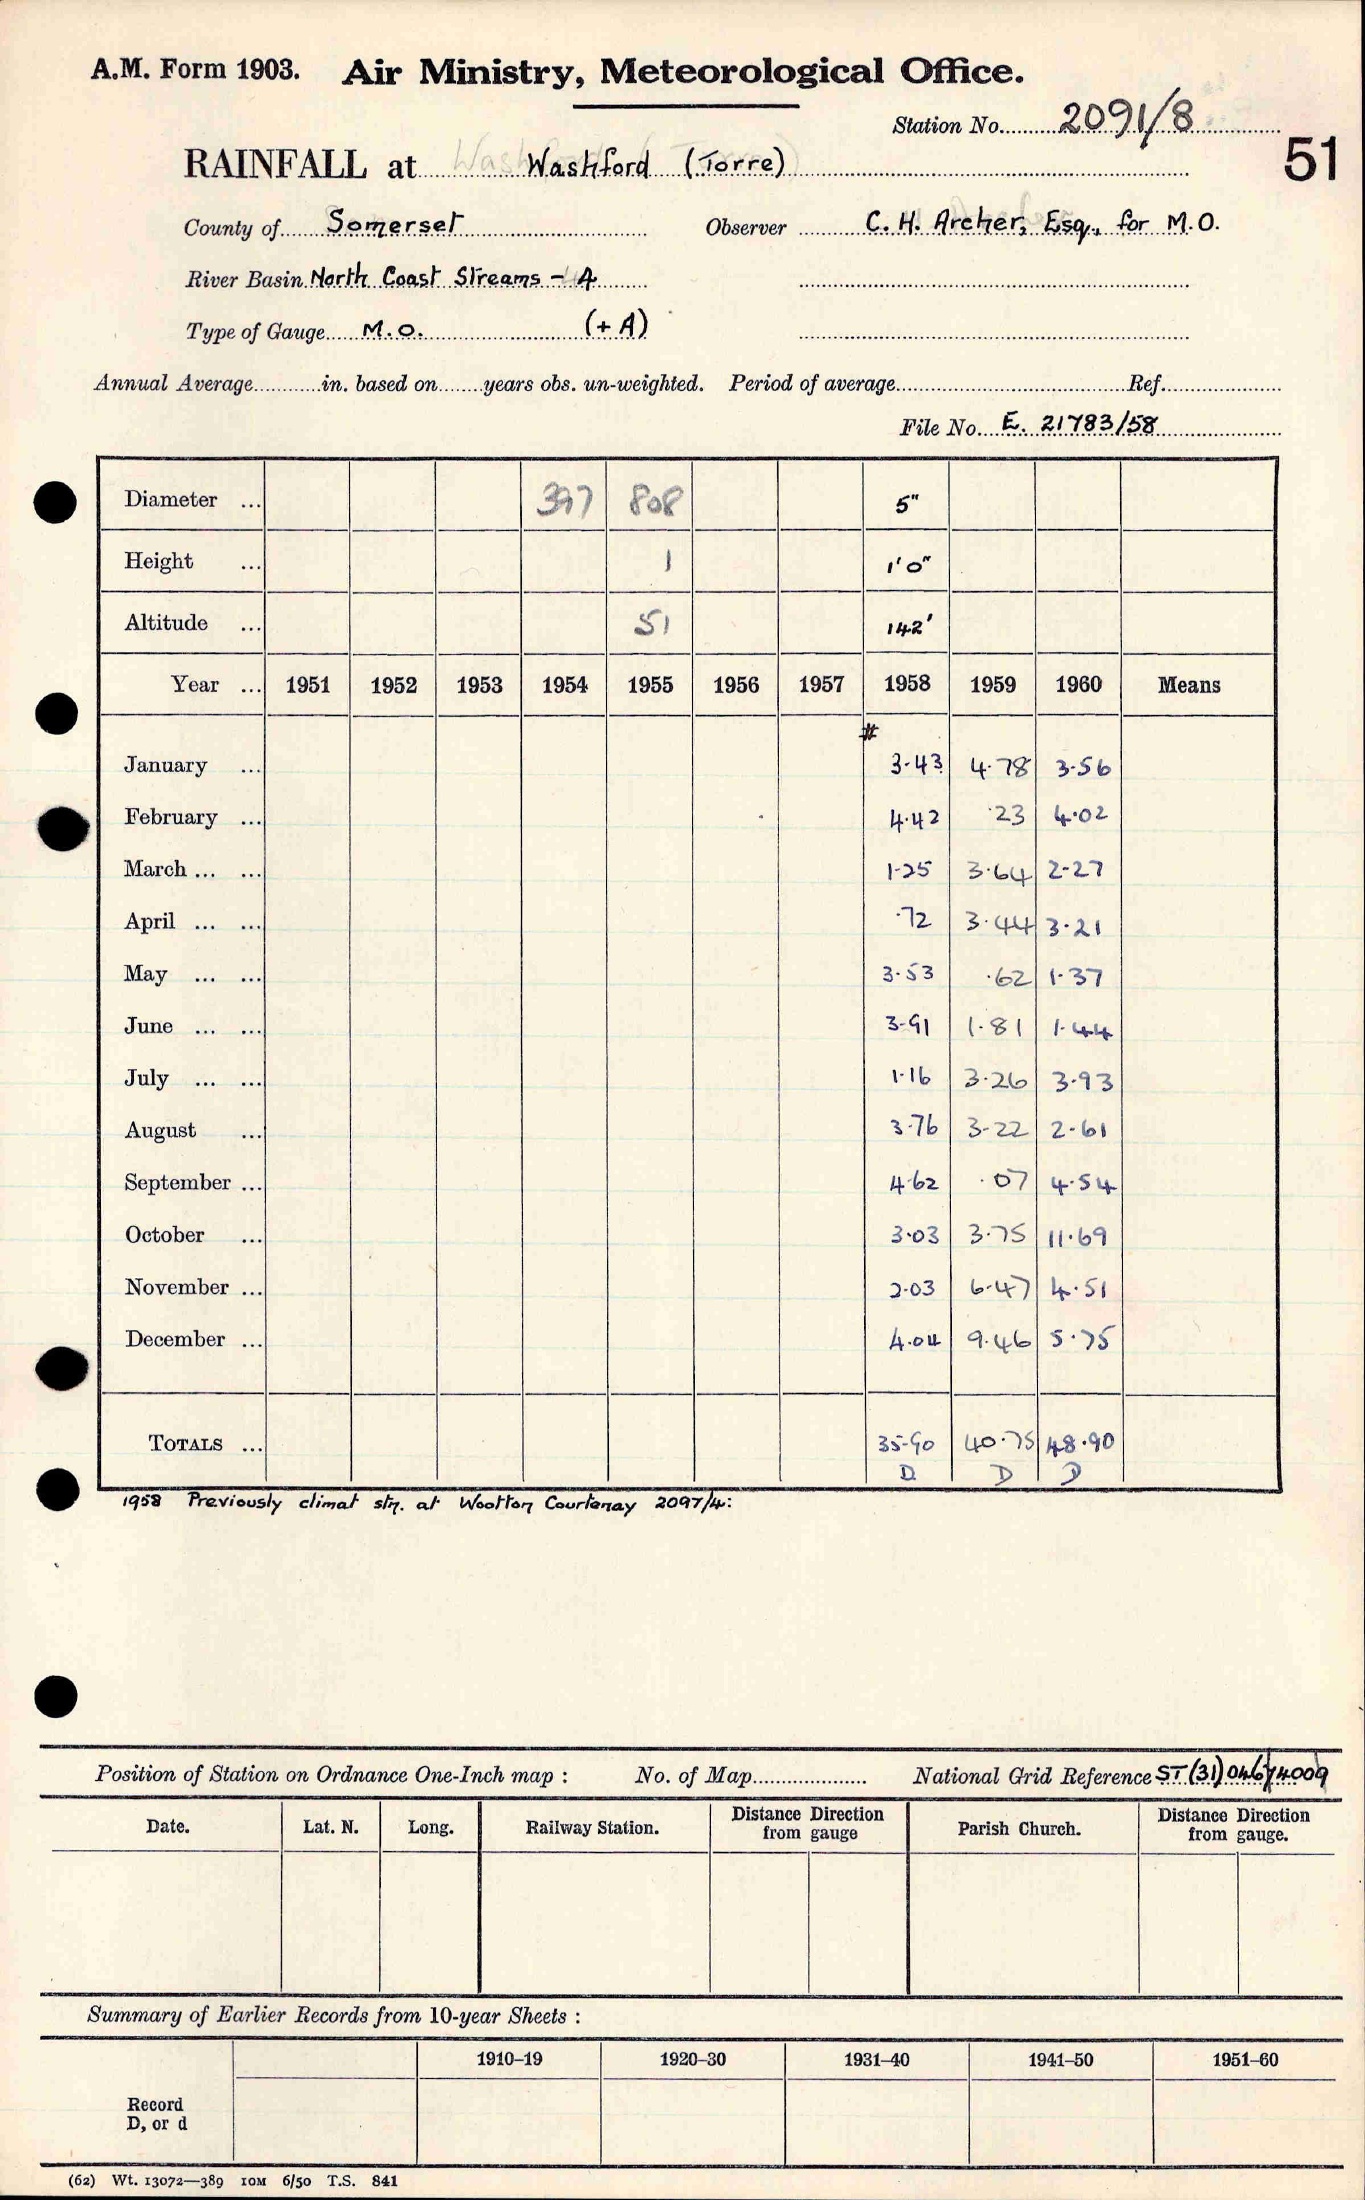 A.M. Form 1903. Air Ministry, Meteorological Office.
Station No. 2091/8
51
RAINFALL at Washford (Torre)
County of Somerset Observer C. H. Archer, Esq., for M.O.
River Basin North Coast Streams - A
Type of Gauge M.O. (+ A)
Annual Average in. based on years obs. un-weighted. Period of average Ref.
File No. E. 21783/58
Diameter ... 397 808 5"
Height ... 1 1'0"
Altitude ... 51 142'
Year ... 1951 1952 1953 1954 1955 1956 1957 1958 1959 1960 Means
#
January ... 3.43 4.78 3.56
February ... 4.42 .23 4.02
March ... ... 1.25 3.64 2.27
April ... ... .72 3.44 3.21
May ... ... 3.53 .62 1.37
June ... ... 3.91 1.81 1.44
July ... ... 1.16 3.26 3.93
August ... 3.76 3.22 2.61
September ... 4.62 .07 4.54
October ... 3.03 3.75 11.69
November ... 2.03 6.47 4.51
December ... 4.04 9.46 5.75
TOTALS ... 35.90 40.75 48.90
D D D
1958 Previously climat stn. at Wootton Courtenay 2097/4:
Position of Station on Ordnance One-Inch map : No. of Map National Grid Reference ST (31) 046/4009
Date. Lat. N. Long. Railway Station. Distance Direction from gauge Parish Church. Distance Direction from gauge.
Summary of Earlier Records from 10-year Sheets :
1910–19 1920–30 1931–40 1941–50 1951–60
Record
D, or d
(62) Wt. 13072—389 10M 6/50 T.S. 841